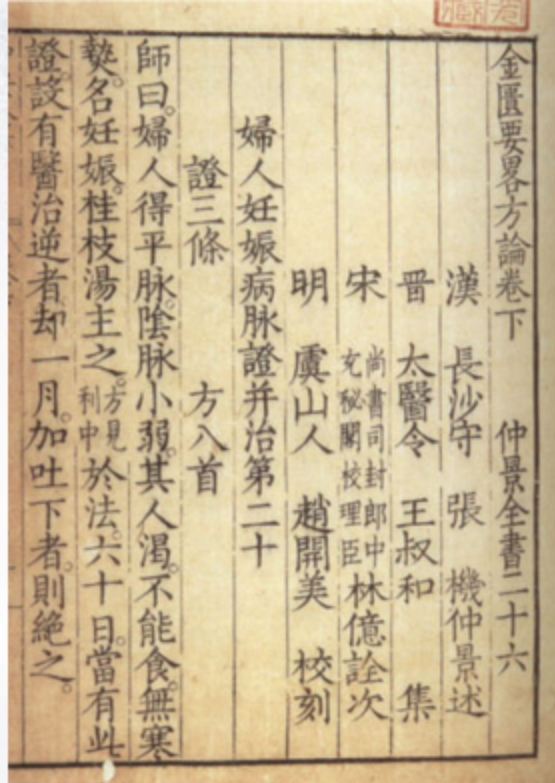 金匱要畧方論卷下 仲景全書二十六
漢 長沙守 張 機仲景述
晉 太醫令 王叔和 集
宋 尚書司封郎中充秘閣校理臣林億詮次
明 虞山人 趙開美 校刻
婦人妊娠病脉證并治第二十
證三條 方八首
師曰。婦人得平脉。陰脉小弱。其人渴。不能食。無寒
熱。名妊娠。桂枝湯主之。方見利中於法。六十日。當有此
證。設有醫治逆者。却一月。加吐下者。則絕之。